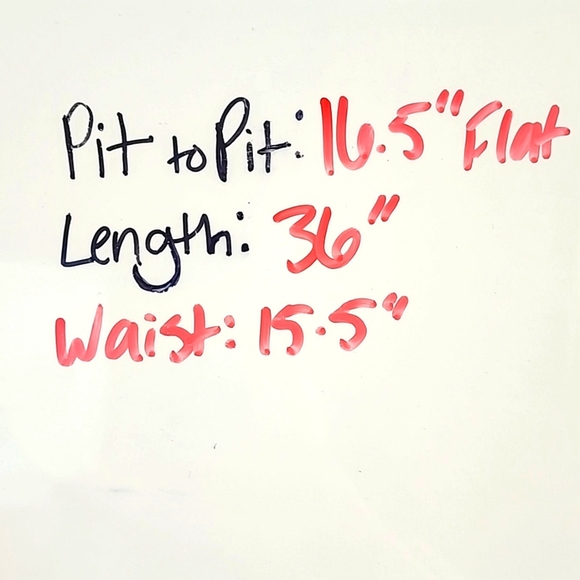 Pit to Pit: 16.5" Flat
Length: 36"
Waist: 15.5"